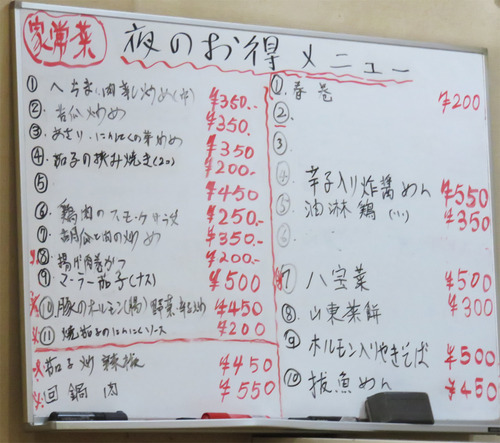 家常菜
夜のお得メニュー
① へちま、肉蒸し炒め(中) ¥350.-
② 苦瓜炒め ¥350.
③ あさり.にんにくの芽炒め ¥350
④ 茄子の挟み焼き(2コ) ¥200.-
⑤ ¥450
⑥ 鶏肉のスモーク ¥250.-
⑦ 胡瓜と肉の炒め ¥350.-
⑧ 揚げ肉巻 ¥200.-
⑨ マーラー茄子(ナス) ¥500
⑩ 豚のホルモン(腸)野菜 炒め ¥450
⑪ 焼茄子のにんにくソース ¥200
茄子炒辣椒 ¥450
回鍋肉 ¥550
①. 春巻 ¥200
②.
③.
④ 辛子入り炸醤めん ¥550
⑤ 油淋鶏(小) ¥350
⑥
⑦ 八宝菜 ¥500
⑧ 山東菜餅 ¥300
⑨ ホルモン入りやきそば ¥500
⑩ 抜魚めん ¥450